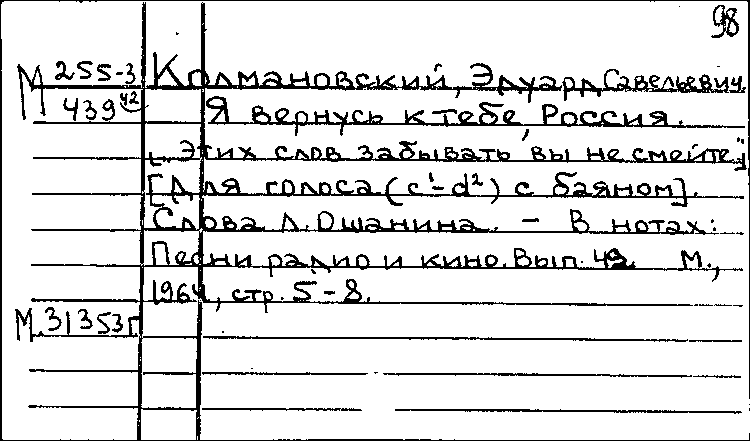 98
М 255-3 Колмановский, Эдуард Савельевич.
439 42 Я вернусь к тебе, Россия.
[„Этих слов забывать вы не смейте"]
[Для голоса (c¹-d²) с баяном].
Слова Л. Ошанина. – В нотах:
Песни радио и кино. Вып. 42. М.,
1964, стр. 5-8.
М.31353г